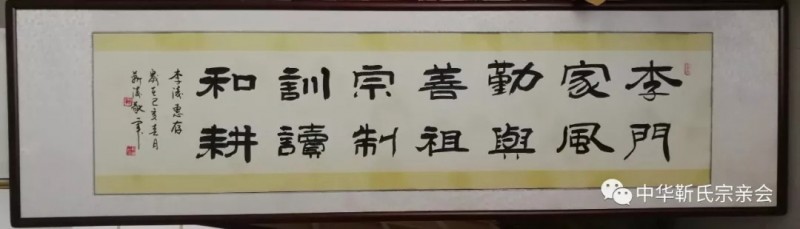 李門
家風
勤與
善祖
宗制
訓讀
和耕
惠存
歲在己亥春月
中华靳氏宗亲会